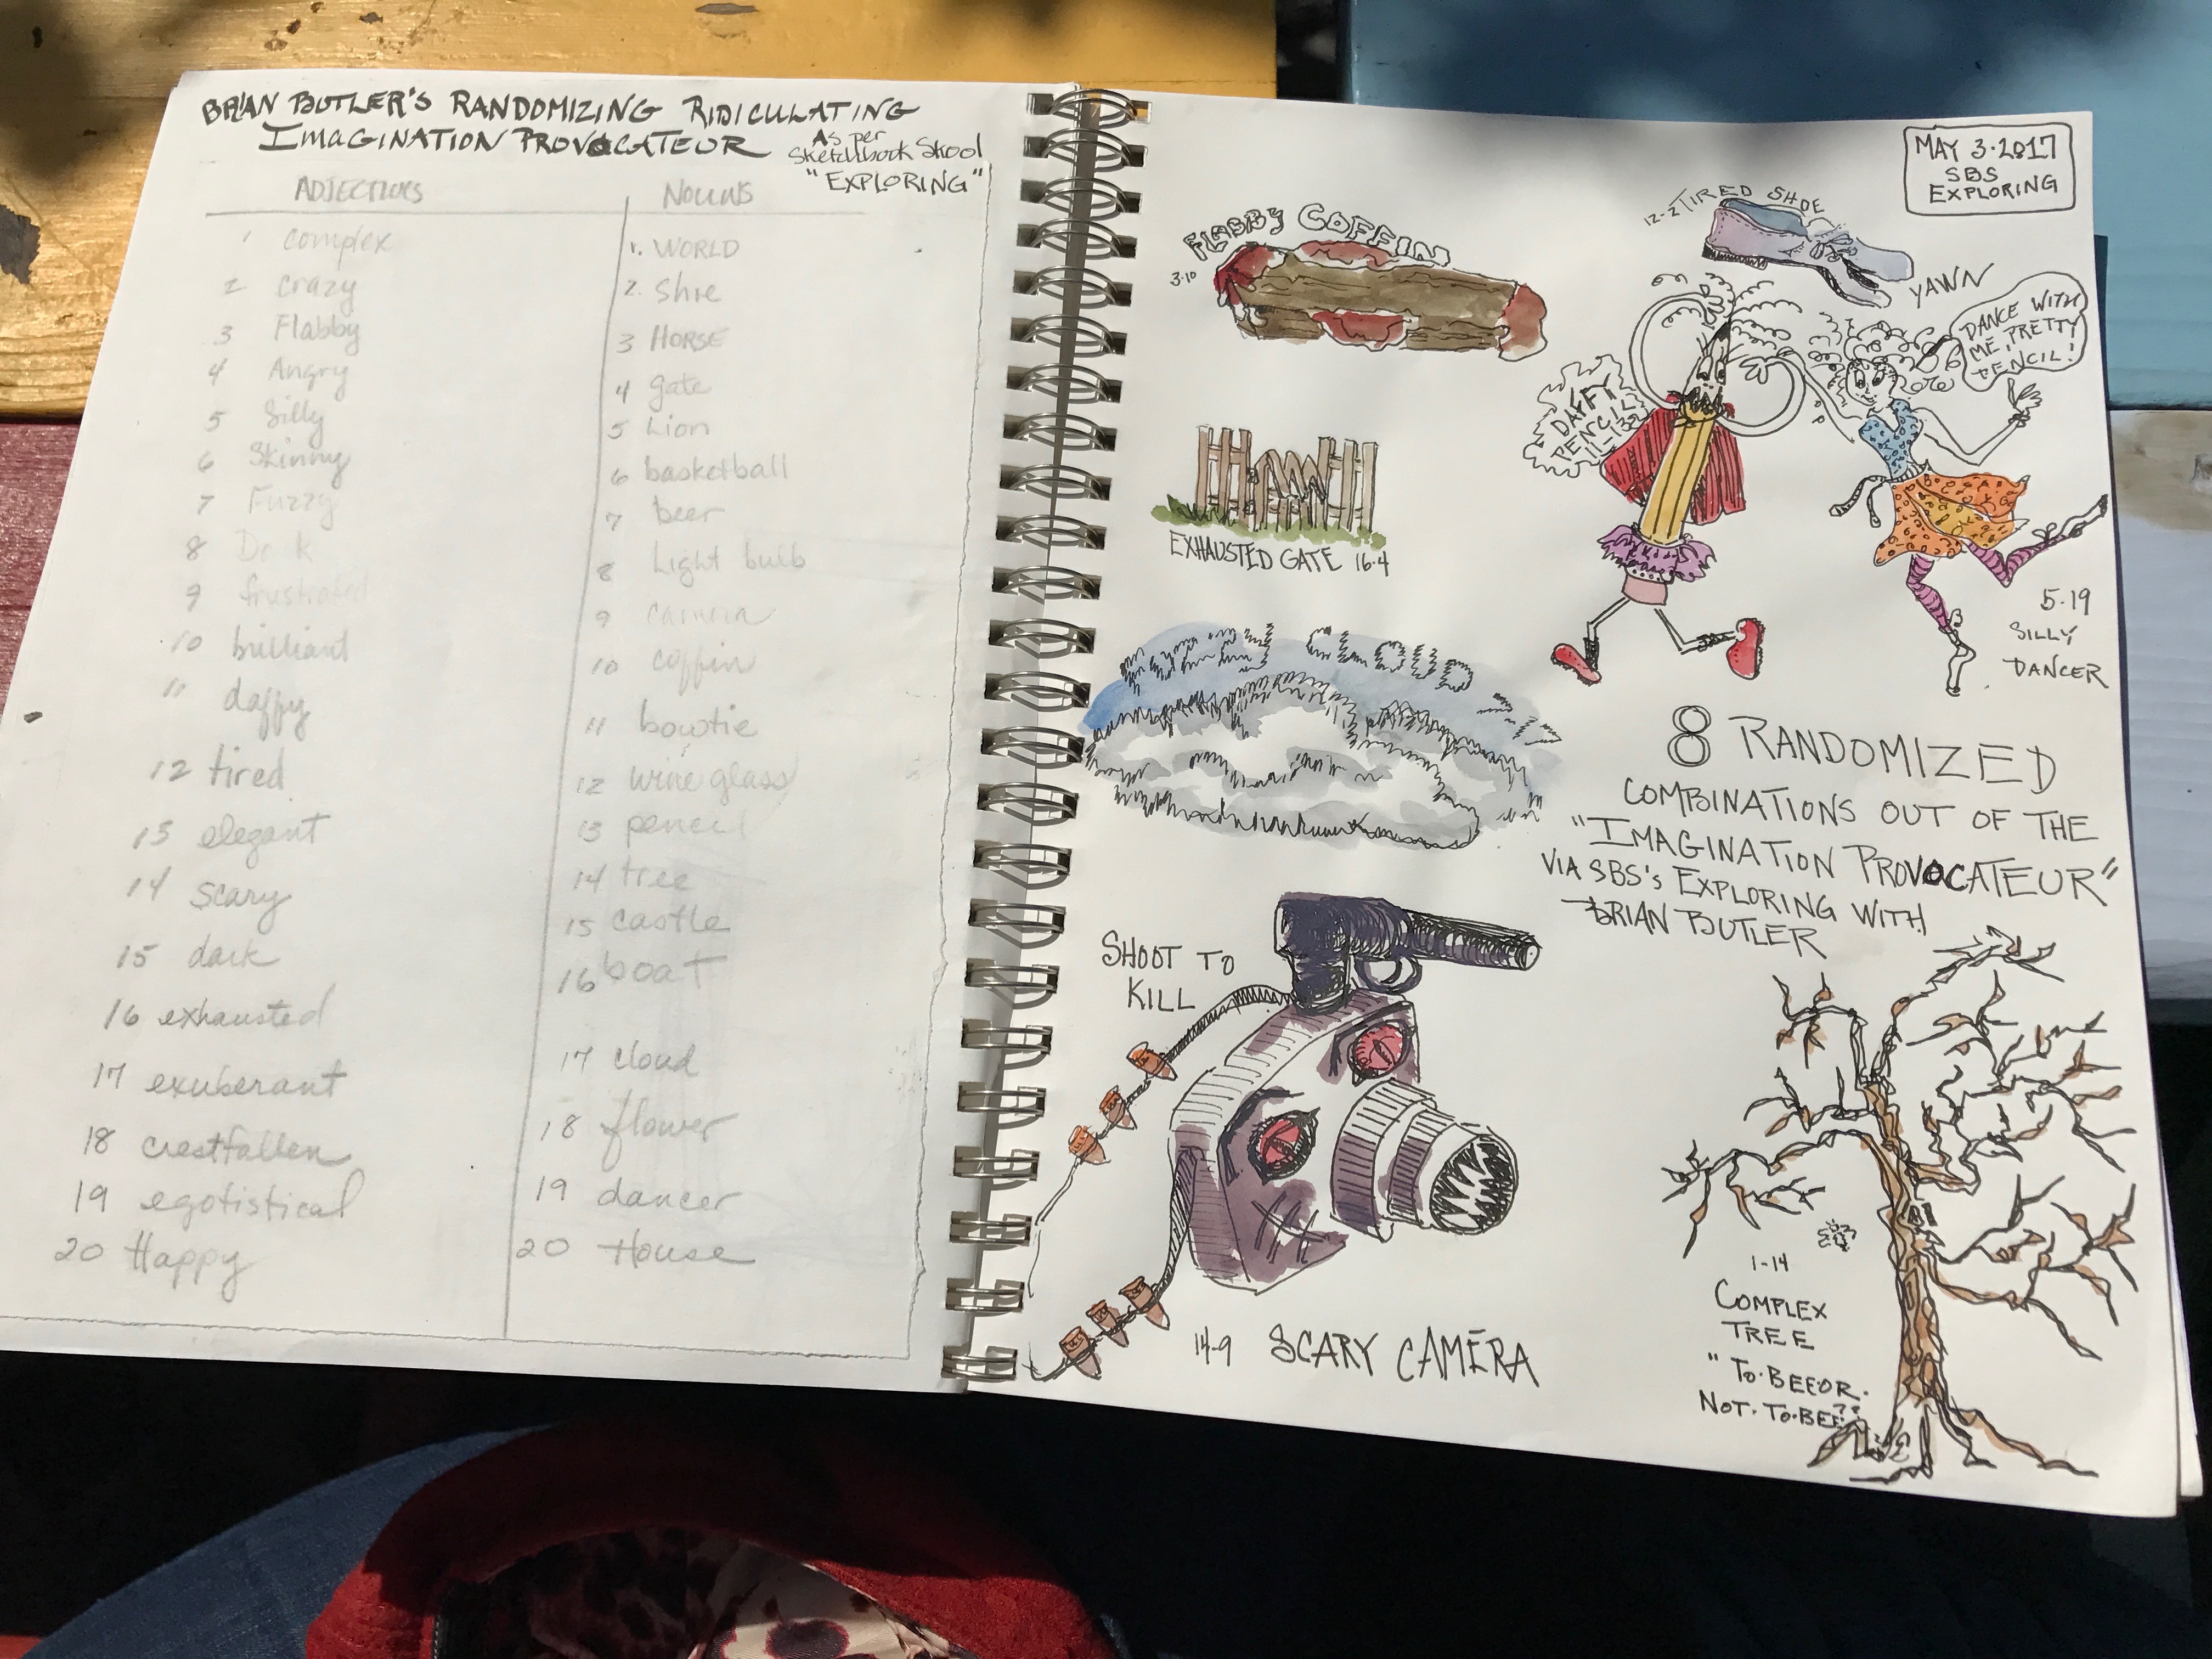 BRIAN BUTLER'S RANDOMIZING RIDICULATING
IMAGINATION PROVOCATEUR
As per
Sketchbook Skool
"EXPLORING"
ADJECTIVES
1 complex
2 crazy
3 Flabby
4 Angry
5 Silly
6 Skinny
7 Fuzzy
8
9 frustrated
10 brilliant
11 daffy
12 tired
13 elegant
14 scary
15 dark
16 exhausted
17 exuberant
18 crestfallen
19 egotistical
20 Happy
NOUNS
1. WORLD
2. Shoe
3 HORSE
4 gate
5 Lion
6 basketball
7 beer
8 Light bulb
9 camera
10 coffin
11 bowtie
12 wine glass
13 pencil
14 tree
15 castle
16 boat
17 cloud
18 flower
19 dancer
20 House
MAY 3·2017
SBS
EXPLORING
FLABBY COFFIN
3·10
12-2 TIRED SHOE
YAWN
DANCE WITH
ME, PRETTY
PENCIL!
DAFFY
PENCIL
EXHAUSTED GATE 16·4
5·19
SILLY
DANCER
CLOUD
8 RANDOMIZED
COMBINATIONS OUT OF THE
"IMAGINATION PROVOCATEUR"
VIA SBS'S EXPLORING WITH
BRIAN BUTLER
SHOOT TO
KILL
14-9 SCARY CAMERA
1-14
COMPLEX
TREE
"TO·BEE·OR·
NOT·TO·BEE??